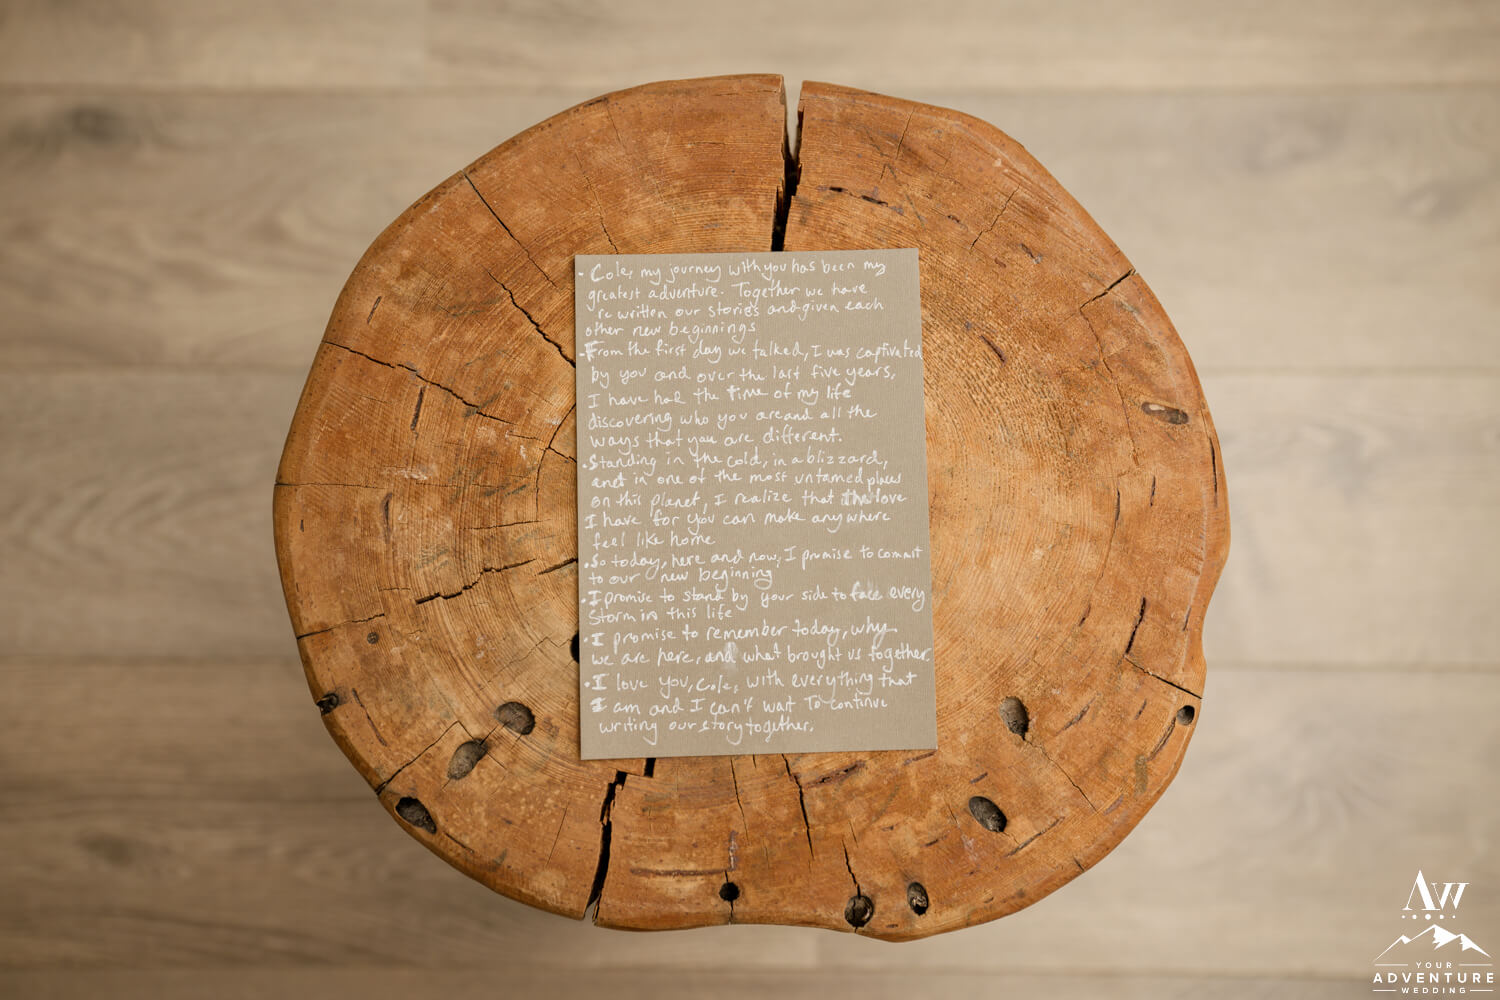 · Cole, my journey with you has been my
greatest adventure. Together we have
re written our stories and given each
other new beginnings
· From the first day we talked, I was captivated
by you and over the last five years,
I have had the time of my life
discovering who you are and all the
ways that you are different.
· Standing in the cold, in a blizzard,
and in one of the most untamed places
on this planet, I realize that the love
I have for you can make anywhere
feel like home
· So today, here and now, I promise to commit
to our new beginning
· I promise to stand by your side to face every
storm in this life
· I promise to remember today, why
we are here, and what brought us together.
· I love you, Cole, with everything that
I am and I can't wait to continue
writing our story together.
AW
YOUR
ADVENTURE
WEDDING